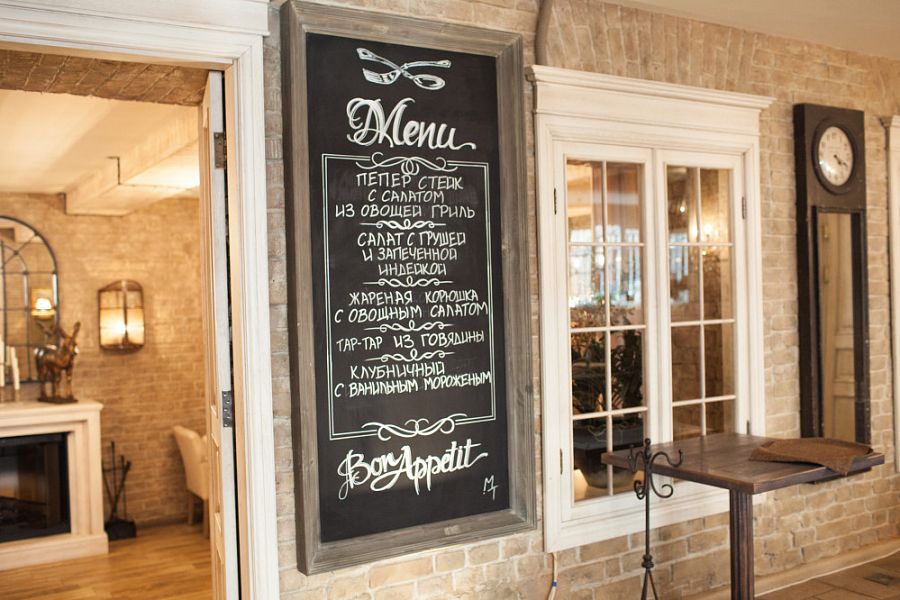 Menu
ПЕПЕР СТЕЙК
С САЛАТОМ
ИЗ ОВОЩЕЙ ГРИЛЬ
САЛАТ С ГРУШЕЙ
И ЗАПЕЧЕННОЙ
ИНДЕЙКОЙ
ЖАРЕНАЯ КОРЮШКА
С ОВОЩНЫМ САЛАТОМ
ТАР-ТАР ИЗ ГОВЯДИНЫ
КЛУБНИЧНЫЙ
С ВАНИЛЬНЫМ МОРОЖЕНЫМ
Bon Appetit